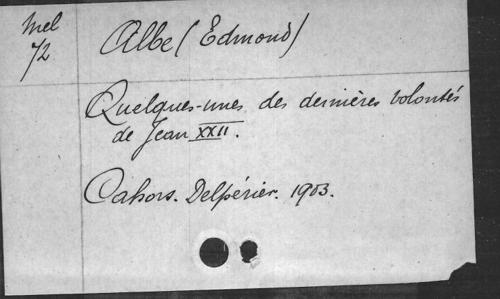 Mel
72
Albe (Edmond)
Quelques-unes des dernières volontés
de Jean XXII.
Cahors. Delpérier. 1903.